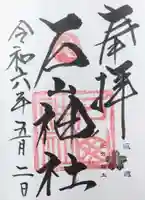 奉拝
石山神社
令和六年五月二日